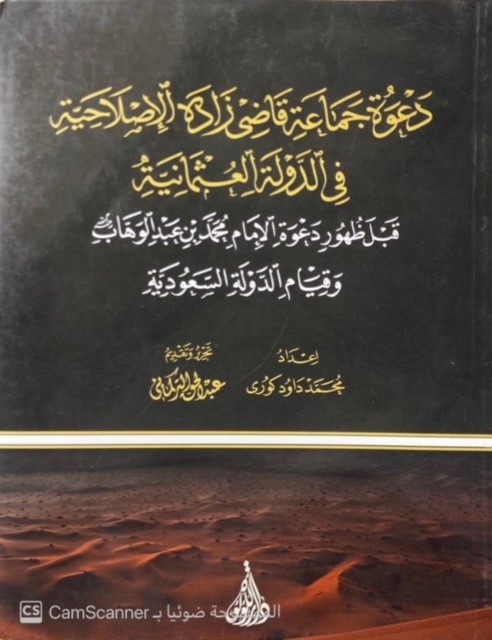 دَعْوَةُ جَمَاعَةِ قَاضِي زَادَه الإِصْلَاحِيَّةِ
فِي الدَّوْلَةِ العُثْمَانِيَّةِ
قَبْلَ ظُهُورِ دَعْوَةِ الإِمَامِ مُحَمَّدِ بْنِ عَبْدِ الوَهَّابِ
وَقِيَامِ الدَّوْلَةِ السَّعُودِيَّةِ
إعداد
محمد داود كوري
تحرير وتقديم
عبد الحق التركماني
دار اللؤلؤة
CS CamScanner الممسوحة ضوئيا بـ